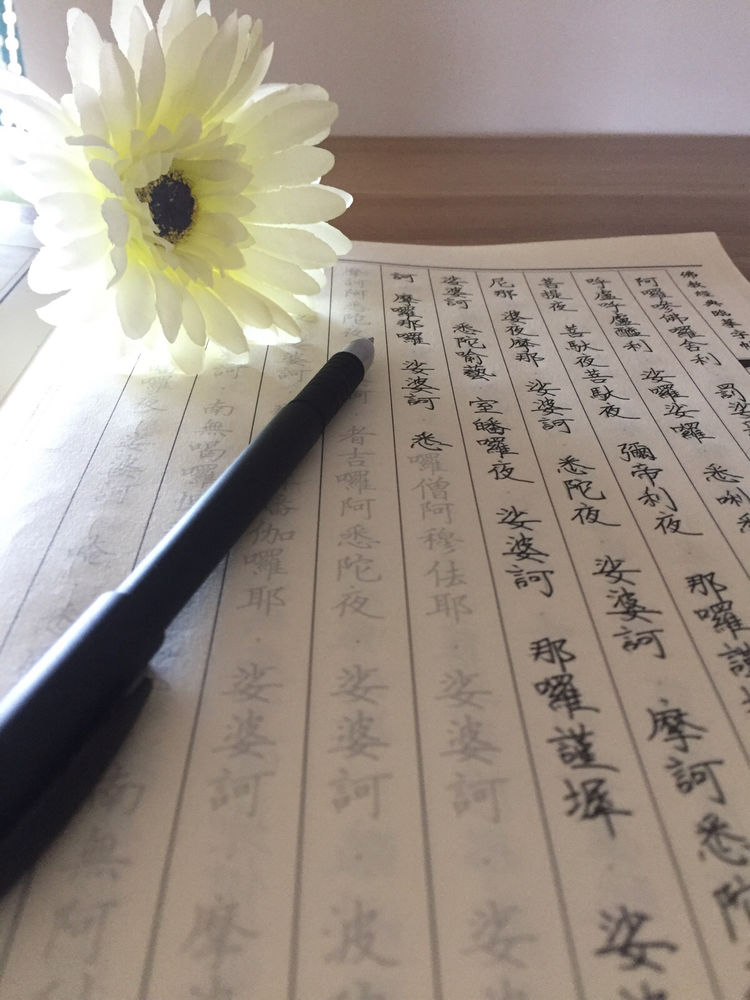 佛教經典臨摹字帖
阿囉嘇佛囉舍利 罰娑
呼盧呼盧醯利 娑囉娑囉 悉唎悉
菩提夜 菩馱夜菩馱夜 彌帝利夜 那囉謹
尼那 婆夜摩那 娑婆訶 悉陀夜 娑婆訶 摩訶悉陀
娑婆訶 悉陀喻藝 室皤囉夜 娑婆訶 那囉謹墀 娑
訶 摩囉那囉 娑婆訶 悉囉僧阿穆佉耶 娑婆訶 娑
摩訶阿悉陀夜 者吉囉阿悉陀夜 娑婆訶 波
皤伽囉耶 娑婆訶 摩
訶 南無喝囉
南無阿